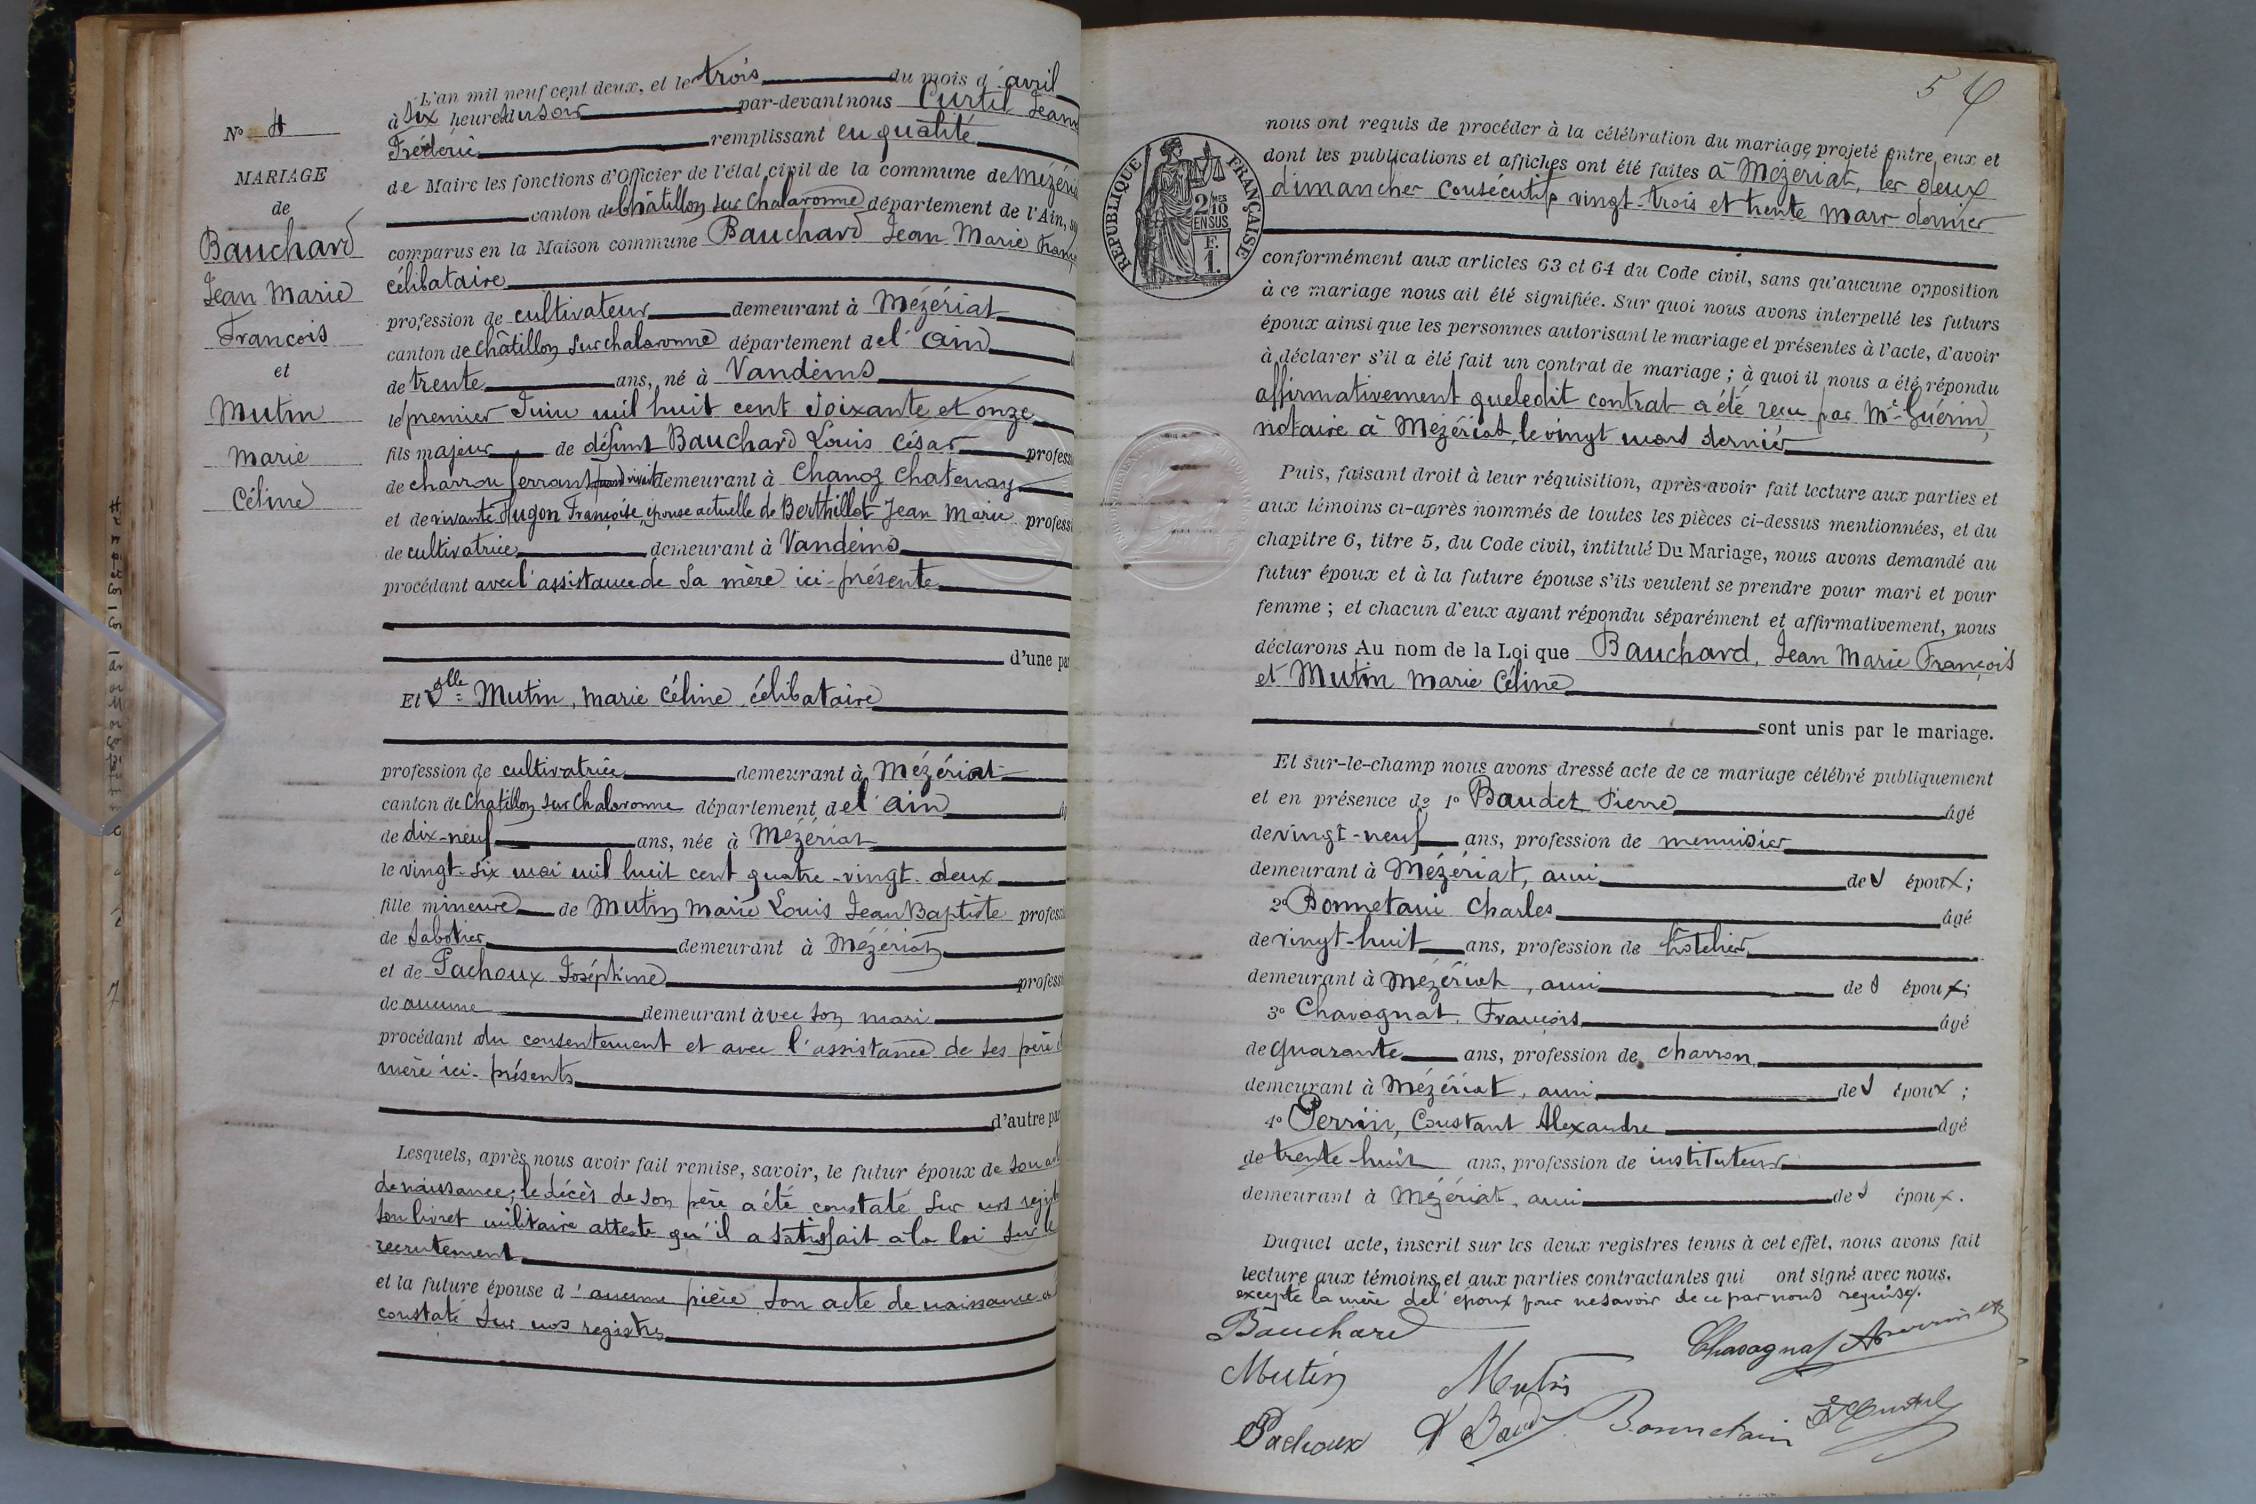 N° 4
MARIAGE
de
Bauchard
Jean Marie
François
et
Mutin
Marie
Céline
L'an mil neuf cent deux, et le trois du mois d'avril
à six heures du soir par-devant nous Curtil Jean
Frédéric remplissant en qualité
de Maire les fonctions d'Officier de l'état civil de la commune de Mézériat
canton de Châtillon sur Chalaronne département de l'Ain,
comparus en la Maison commune Bauchard Jean Marie François
célibataire
profession de cultivateur demeurant à Mézériat
canton de Châtillon sur chalaronne département de l'Ain
de trente ans, né à Vandeins
le premier Juin mil huit cent soixante et onze
fils majeur de défunt Bauchard Louis César profess
de charron ferrant quand vivait demeurant à Chanoz Chatenay
et de vivante Hugon Françoise, épouse actuelle de Berthillot Jean Marie profess
de cultivatrice demeurant à Vandeins
procédant avec l'assistance de sa mère ici-présente
d'une pa
Et Dlle Mutin, Marie Céline célibataire
profession de cultivatrice demeurant à Mézériat
canton de Chatillon sur Chalaronne département de l'Ain
de dix-neuf ans, née à Mézériat
le vingt-six mai mil huit cent quatre-vingt-deux
fille mineure de Mutin Marie Louis Jean Baptiste profess
de Sabotier demeurant à Mézériat
et de Pachoux Joséphine profess
de aucune demeurant avec son mari
procédant du consentement et avec l'assistance de ses père et
mère ici-présents
d'autre pa
Lesquels, après nous avoir fait remise, savoir, le futur époux de son acte
de naissance; le décès de son père a été constaté sur nos regist
son livret militaire atteste qu'il a satisfait à la loi sur le
recrutement
et la future épouse d'aucune pièce son acte de naissance a
constaté sur nos registres
REPUBLIQUE FRANÇAISE
2 MES
10
EN SUS
F.
1.
nous ont requis de procéder à la célébration du mariage projeté entre eux et
dont les publications et affiches ont été faites à Mézériat, les deux
dimanches consécutifs vingt-trois et trente mars dernier
conformément aux articles 63 et 64 du Code civil, sans qu'aucune opposition
à ce mariage nous ait été signifiée. Sur quoi nous avons interpellé les futurs
époux ainsi que les personnes autorisant le mariage et présentes à l'acte, d'avoir
à déclarer s'il a été fait un contrat de mariage ; à quoi il nous a été répondu
affirmativement que ledit contrat a été reçu par Me Guérin,
notaire à Mézériat, le vingt mars dernier
Puis, faisant droit à leur réquisition, après avoir fait lecture aux parties et
aux témoins ci-après nommés de toutes les pièces ci-dessus mentionnées, et du
chapitre 6, titre 5, du Code civil, intitulé Du Mariage, nous avons demandé au
futur époux et à la future épouse s'ils veulent se prendre pour mari et pour
femme ; et chacun d'eux ayant répondu séparément et affirmativement, nous
déclarons Au nom de la Loi que Bauchard, Jean Marie François
et Mutin Marie Céline
sont unis par le mariage.
Et sur-le-champ nous avons dressé acte de ce mariage célébré publiquement
et en présence de 1° Baudet Pierre âgé
de vingt-neuf ans, profession de menuisier
demeurant à Mézériat, ami des époux;
2° Bonnetain Charles âgé
de vingt-huit ans, profession de hôtelier
demeurant à Mézériat, ami des époux;
3° Chavagnat, François âgé
de quarante ans, profession de charron
demeurant à Mézériat, ami des époux ;
4° Perrin, Constant Alexandre âgé
de trente-huit ans, profession de instituteur
demeurant à Mézériat, ami des époux.
Duquel acte, inscrit sur les deux registres tenus à cet effet, nous avons fait
lecture aux témoins et aux parties contractantes qui ont signé avec nous.
excepté la mère de l'époux pour ne savoir de ce par nous requise.
Bauchard
Chavagnat
Mutin Mutin
Pachoux Bonnetain Curtil